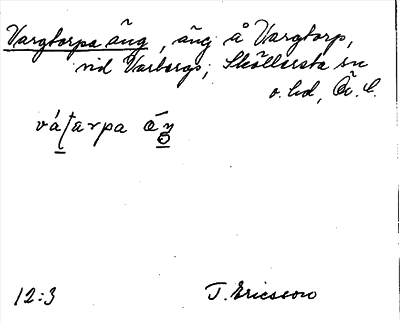 Vargtorpa äng, äng å Vargtorp,
vid Varbergs; Sköllersta sn
o. hd, Ö. L.
12:3 T. Ericsson